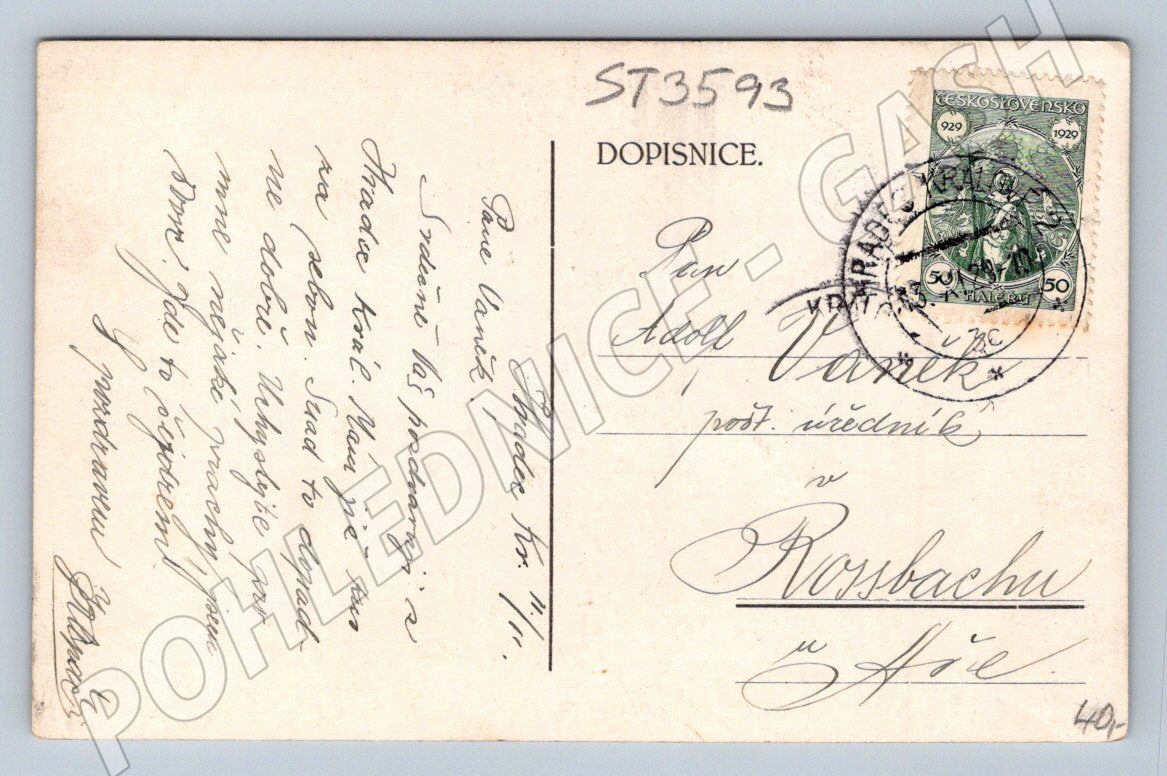 ST3593
DOPISNICE.
ČESKOSLOVENSKO
929 1929
50 HALÉŘŮ 50
HRADEC KRÁLOVÉ
Pan
Adolf Vaněk
pošt. úředník
v
Rossbachu
u Aše.
40,-
Hradec Kr. 11/11.
Pane Vaněk.
Srdečně Vás pozdravuji z
Hradce Král. Mám již
za sebou. Snad to dopad-
ne dobře. Uchystejte pro
mne nějaké prachy, jsem
dorr. Jde to čigdreml
S pozdravem
POHLEDNICE - GASH